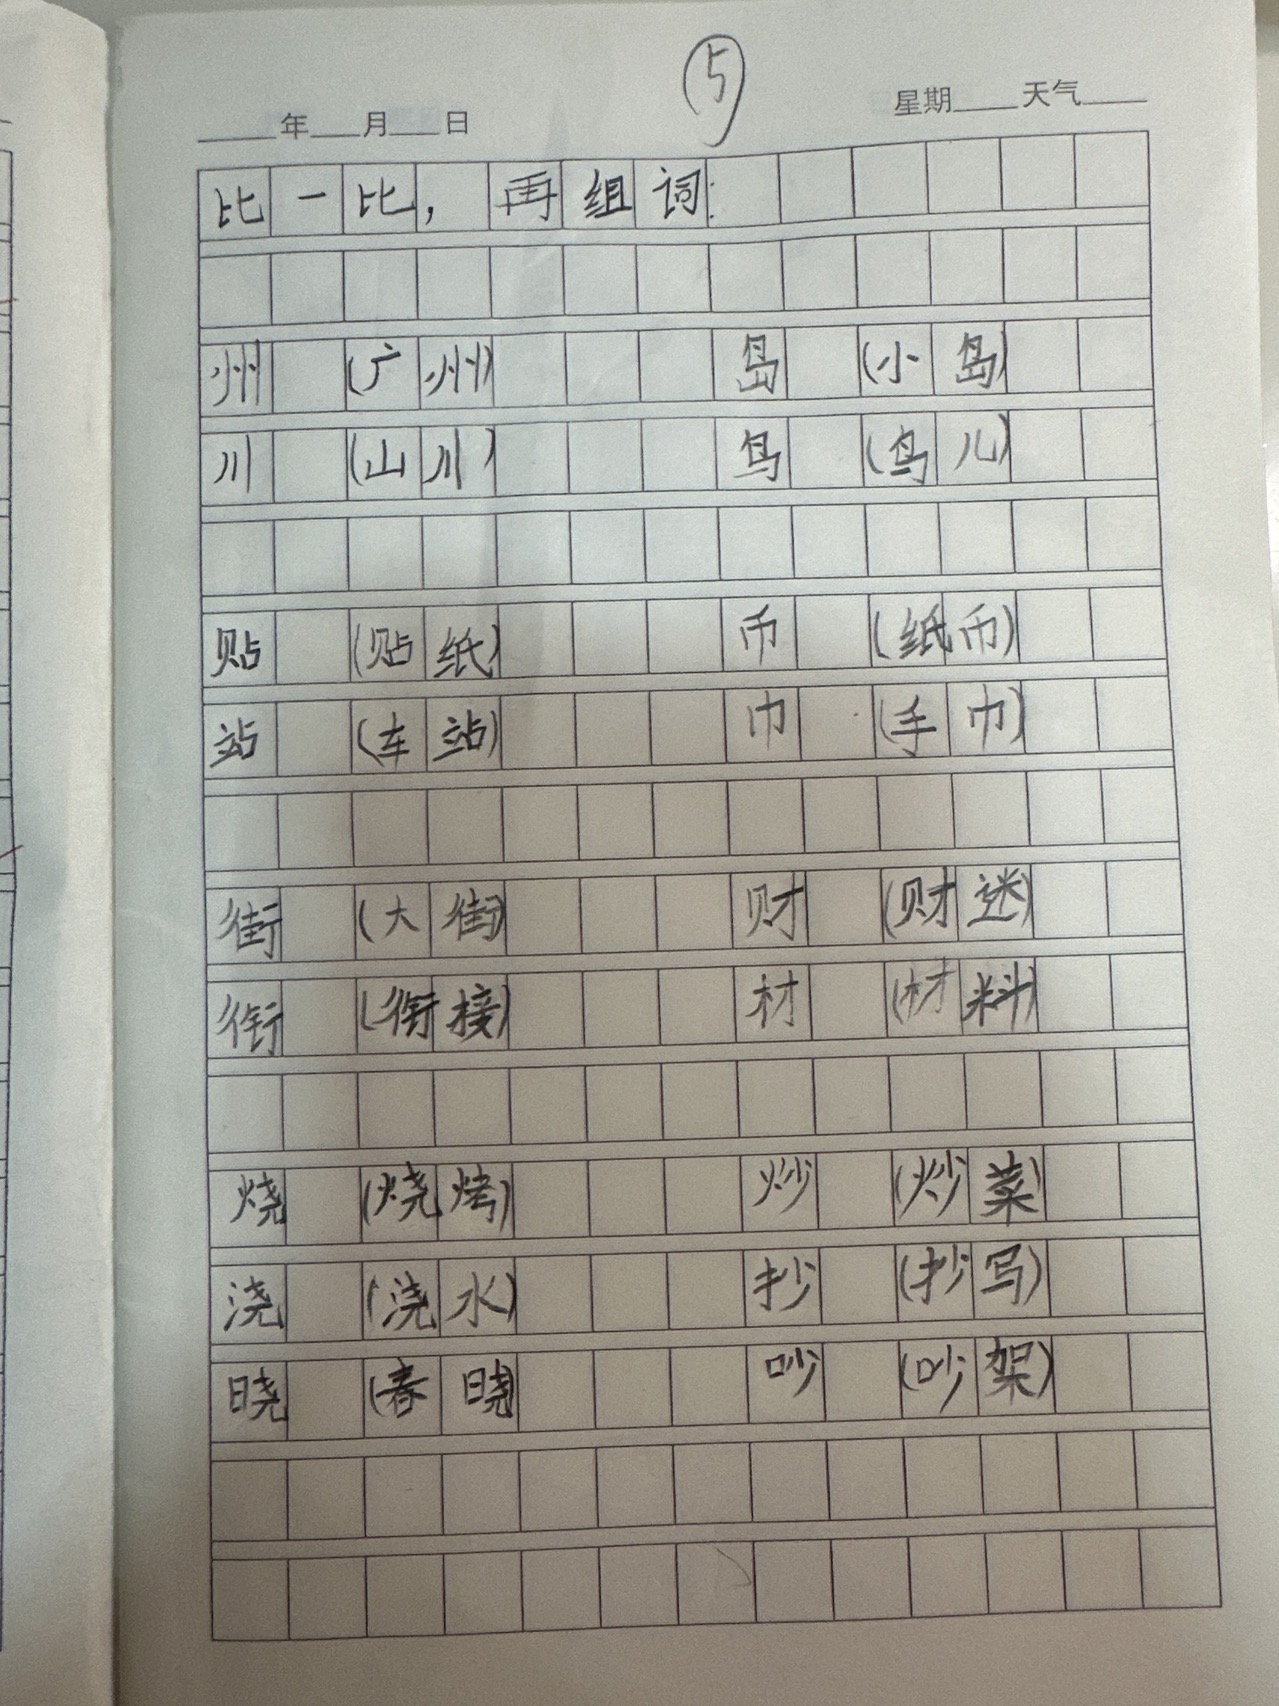 ⑤
年 月 日 星期 天气
比一比，再组词：
州 (广州) 岛 (小岛)
川 (山川) 鸟 (鸟儿)
贴 (贴纸) 币 (纸币)
站 (车站) 巾 (手巾)
街 (大街) 财 (财迷)
衔 (衔接) 材 (材料)
烧 (烧烤) 炒 (炒菜)
浇 (浇水) 抄 (抄写)
晓 (春晓) 吵 (吵架)